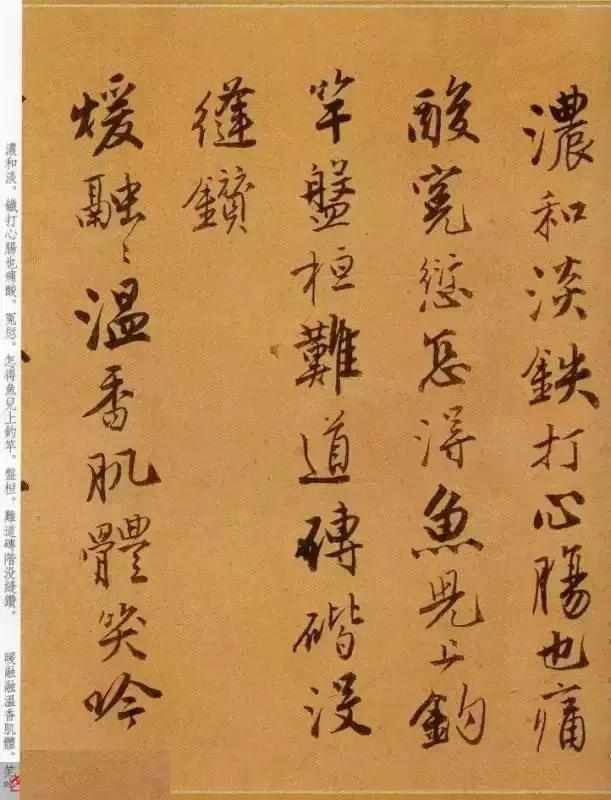 濃和淡鉄打心腸也痛
酸寃愆怎得魚兒上鈎
竿盤桓難道磚階没
縫鑽
煖融〻溫香肌體笑吟
濃和淡。鐵打心腸也痛酸。冤愆。怎得魚兒上釣竿。盤桓。難道磚階没縫鑽。　暖融融溫香肌體。笑